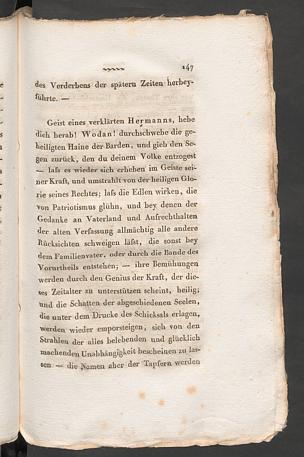 147
des Verderbens der spätern Zeiten herbey-
führte. —
Geist eines verklärten Hermanns, hebe
dich herab! Wodan! durchschwebe die ge-
heiligten Haine der Barden, und gieb den Se-
gen zurück, den du deinem Volke entzogest
— laſs es wieder sich erheben im Geiste sei-
ner Kraft, und umstrahlt von der heiligen Glo-
rie seines Rechtes; laſs die Edlen wirken, die
von Patriotismus glühn, und bey denen der
Gedanke an Vaterland und Aufrechthalten
der alten Verfassung allmächtig alle andere
Rücksichten schweigen läſst, die sonst bey
dem Familienvater, oder durch die Bande des
Vorurtheils entstehen; — ihre Bemühungen
werden durch den Genius der Kraft, der die-
ses Zeitalter zu unterstützen scheint, heilig;
und die Schatten der abgeschiedenen Seelen,
die unter dem Drucke des Schicksals erlagen,
werden wieder emporsteigen, sich von den
Strahlen der alles belebenden und glücklich
machenden Unabhängigkeit bescheinen zu las-
sen — die Namen aber der Tapfern werden